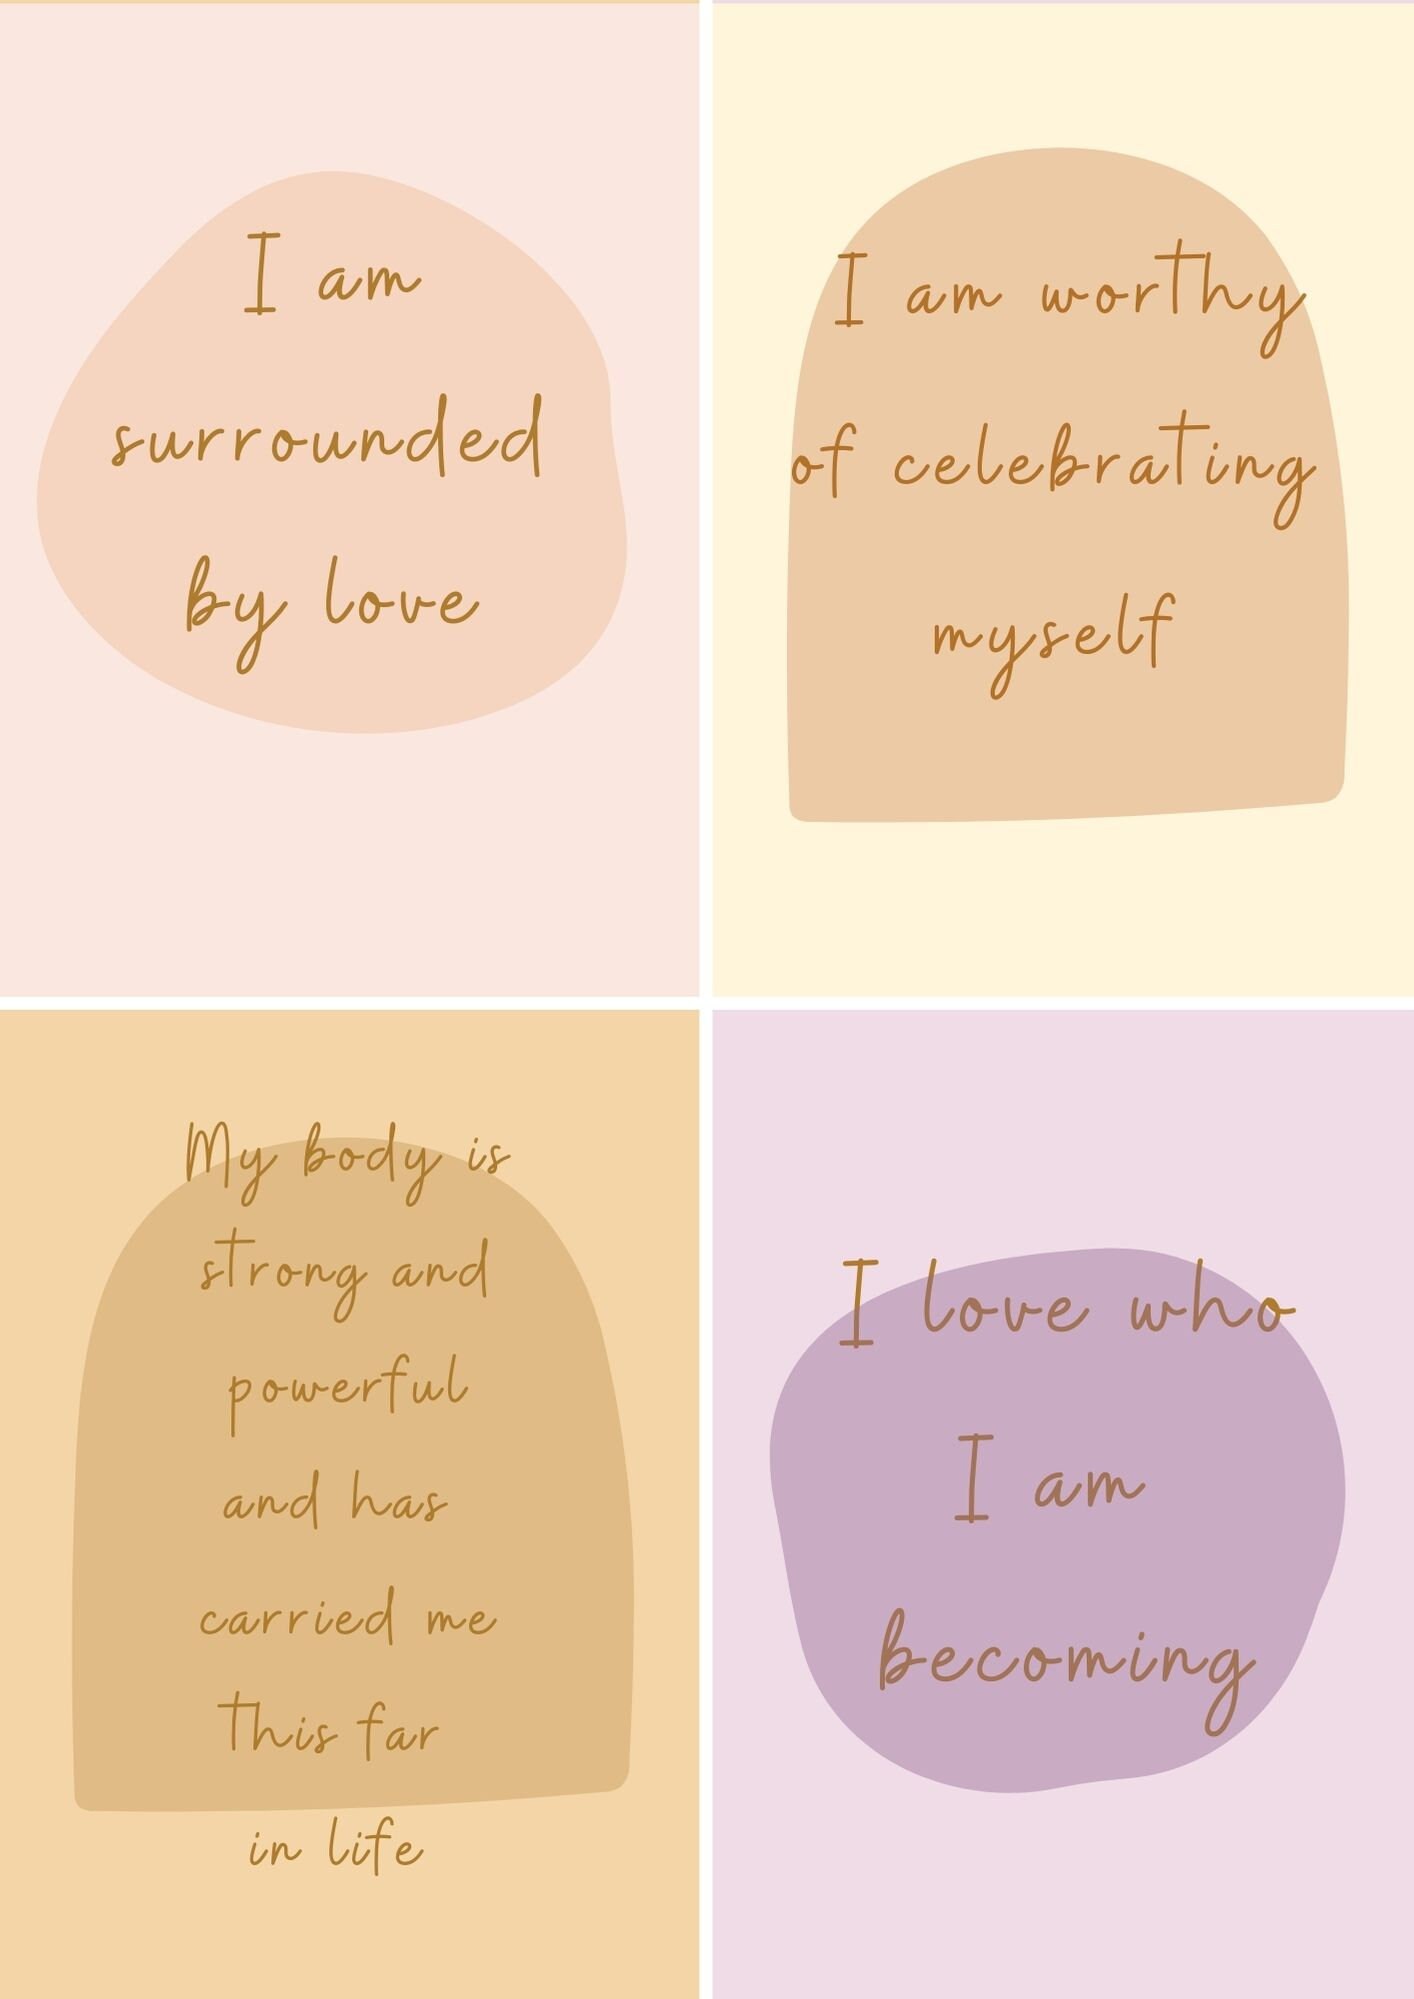 I am
surrounded
by love
I am worthy
of celebrating
myself
My body is
strong and
powerful
and has
carried me
this far
in life
I love who
I am
becoming